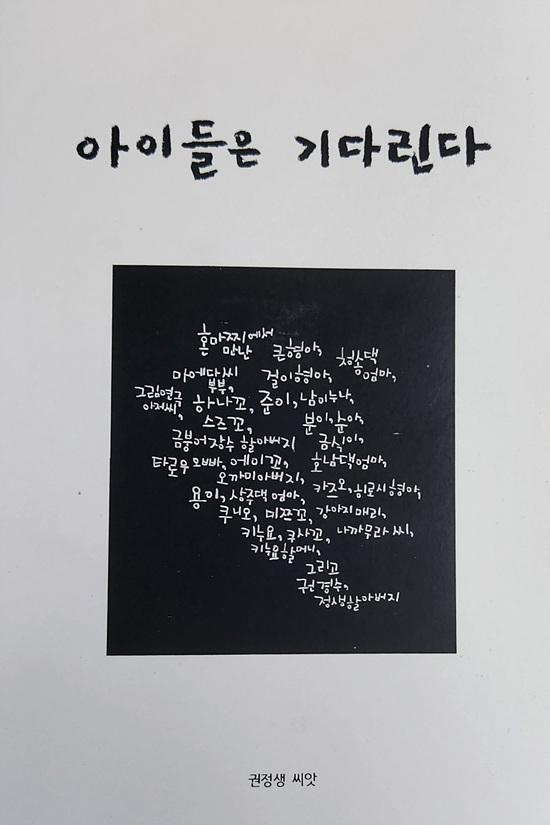 아이들은 기다린다
혼마찌에서
만난 큰형아, 청송댁
엄마,
마에다씨
부부, 걸이형아,
그림연극
아저씨, 하나꼬, 준이, 남이누나,
스즈꼬, 분이, 순아,
금붕어장수 할아버지 금식이,
타로우 오빠, 에이꼬, 호남댁엄마,
오까미아버지, 카즈오, 히로시형아,
용이, 상주댁 엄마,
쿠니오, 미쯔꼬, 강아지메리,
키누요, 쿠사꼬, 나까무라 씨,
키누요할머니,
그리고
권경수,
정생할아버지
권정생 씨앗